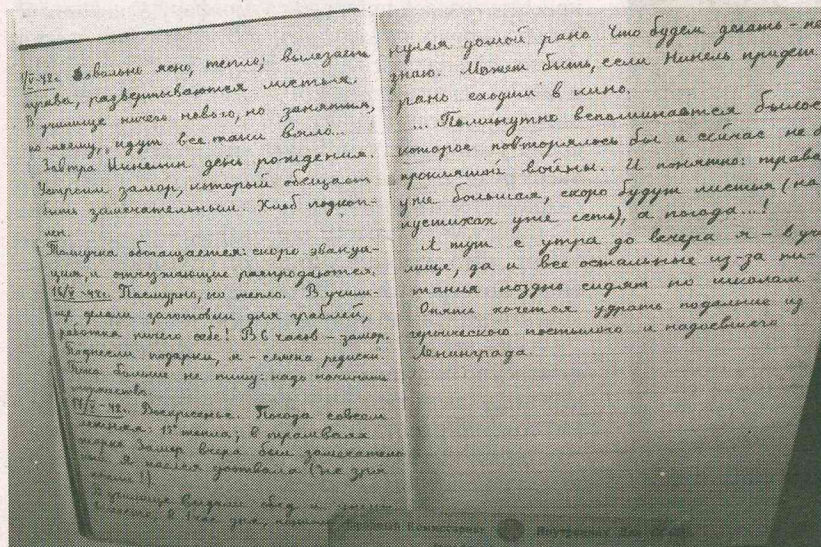 /V-42г. Довольно ясно, тепло; вылезает
трава, развертываются листья.
В училище ничего нового, но занятия,
по-моему, идут все-таки вяло...
Завтра Нинелин день рождения.
Устроим замор, который обещает
быть замечательным. Хлеб подкоп-
лен.
Толкучка обогащается: скоро эвакуа-
ция, и отъезжающие распродаются.
16/V-42г. Пасмурно, но тепло. В учили-
ще делали заготовки для граблей,
работка ничего себе! В 6 часов – замор.
Поднесли подарки, я – семена редиски.
Пока больше не пишу: надо начинать
17/V-42. Воскресенье. Погода совсем
летняя: 15° тепла; в трамваях
жарко. Замор вчера был
Я наелся до отвала (не зря
В училище выдали обед и
нулся домой рано. Что будем делать – не
знаю. Может быть, если Нинель придет
рано сходим в кино.
...Поминутно вспоминается былое,
которое повторялось бы и сейчас не
проклятой войны. И понятно: трава
уже большая, скоро будут листья (на
кустиках уже есть), а погода...!
А тут с утра до вечера я – в учи-
лище, да и все остальные из-за пи-
танья поздно сидят по школам.
Опять хочется удрать подальше из
героического постылого и надоевшего
Ленинграда.
Народный Комиссариат Внутренних Дел